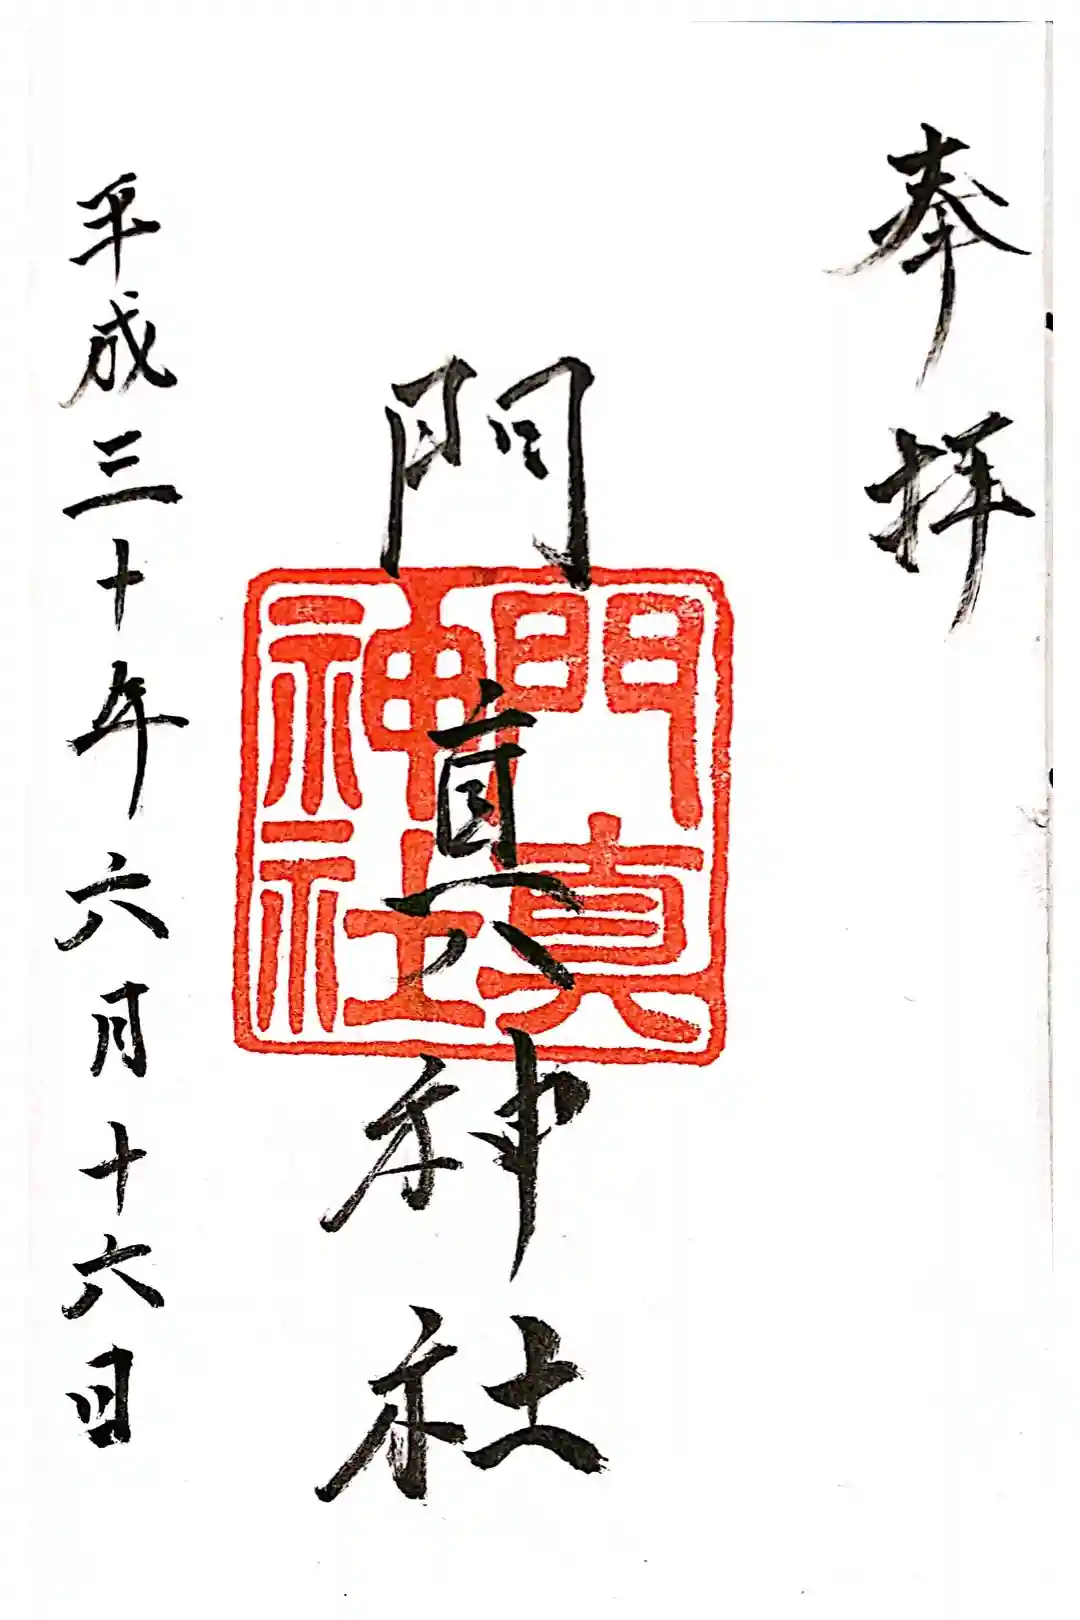 奉拝
門真神社
門真
神社
平成三十年六月十六日